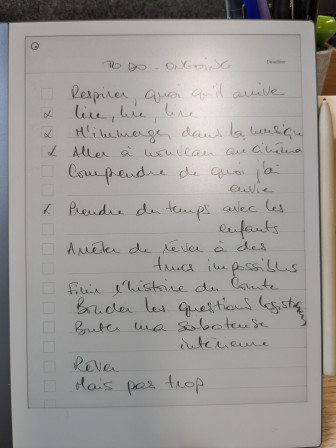 TO DO - ONGOING
Respirer, quoi qu'il arrive
Lire, lire, lire
M'immerger dans la musique
Aller à nouveau au cinéma
Comprendre de quoi j'ai
envie
Prendre du temps avec les
enfants
Arrêter de rêver à des
trucs impossibles
Finir l'histoire du Comte
les questions
Buter ma saboteuse
intérieure
Rêver
Mais pas trop